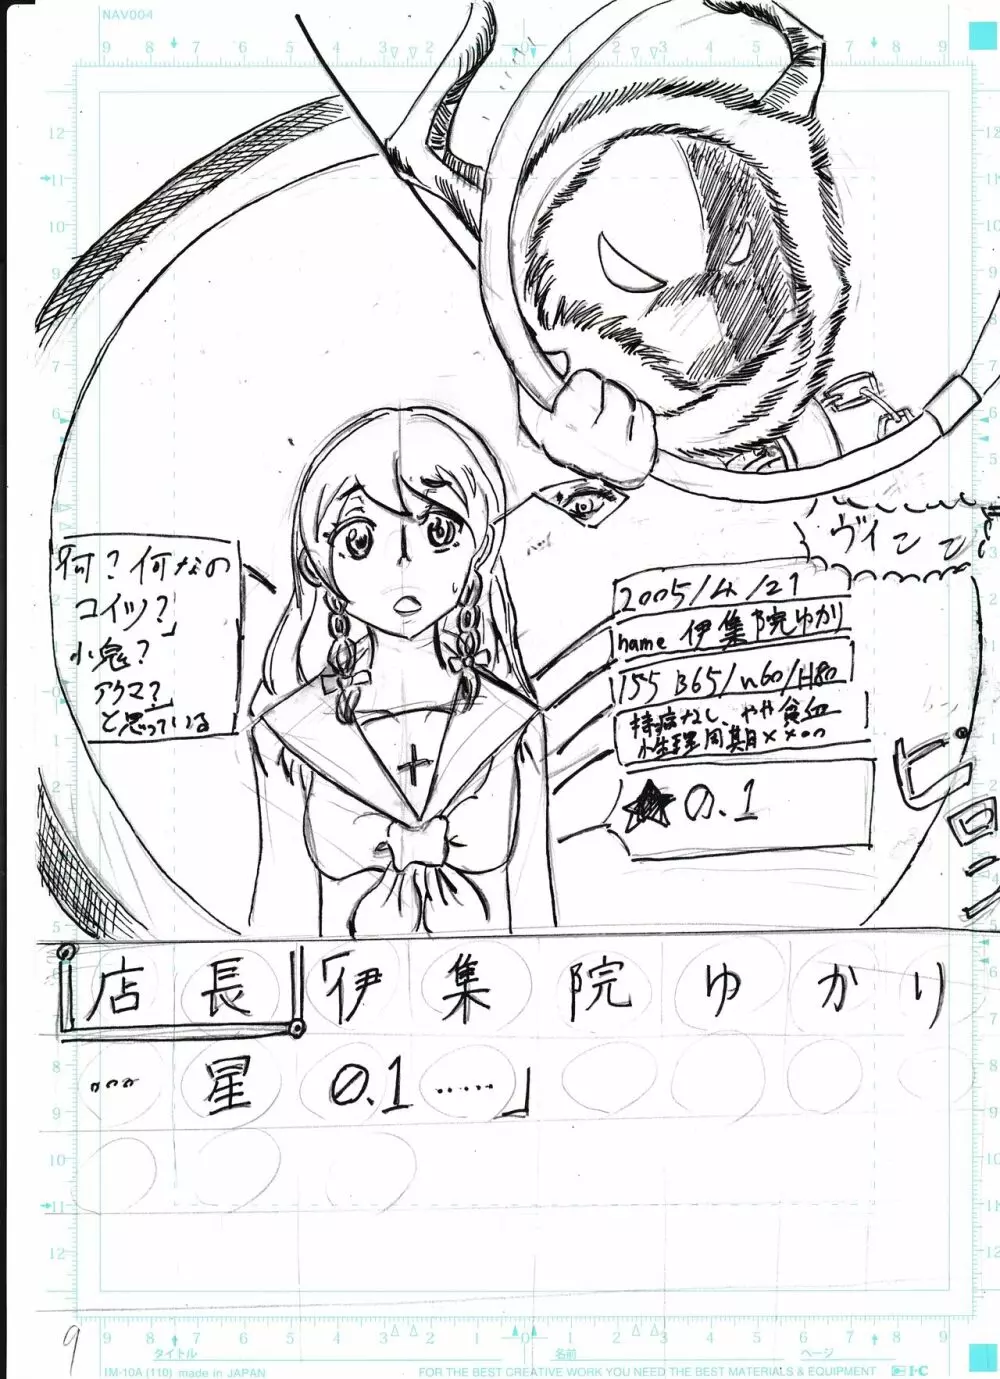 NAV004
ヴィンン
何?何なの
コイツ?
小鬼?
アクマ?
と思っている
2005/4/21
name 伊集院ゆかり
155 B65/W60/H80
持病なし、やや貧血
小生理周期××
★0.1
ピロン
店長「伊集院ゆかり
…星0.1……」
9
タイトル
名前
ページ
IM-10A (110) made in JAPAN
FOR THE BEST CREATIVE WORK YOU NEED THE BEST MATERIALS & EQUIPMENT
I・C